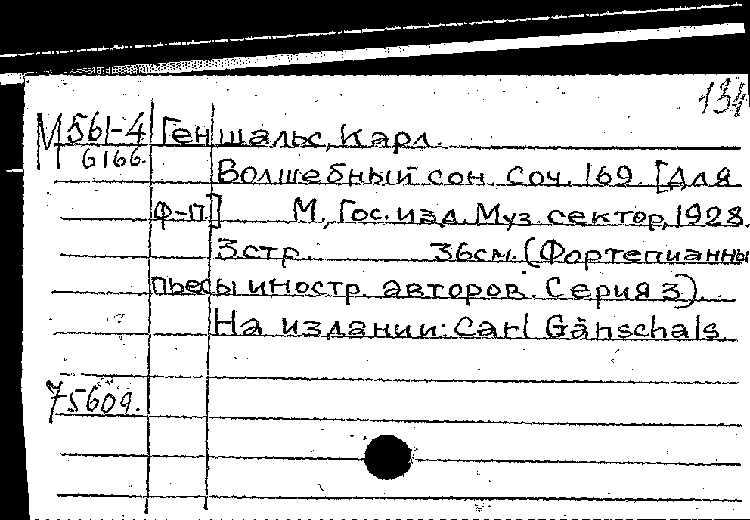 134
М 561-4 Геншальс, Карл.
6166.
Волшебный сон. Соч. 169. [Для
ф-п] М., Гос. изд. Муз. сектор, 1928.
3 стр. 36 см. (Фортепианны
пьесы иностр. авторов. Серия 3).
На издании: Carl Gänschals
75609.